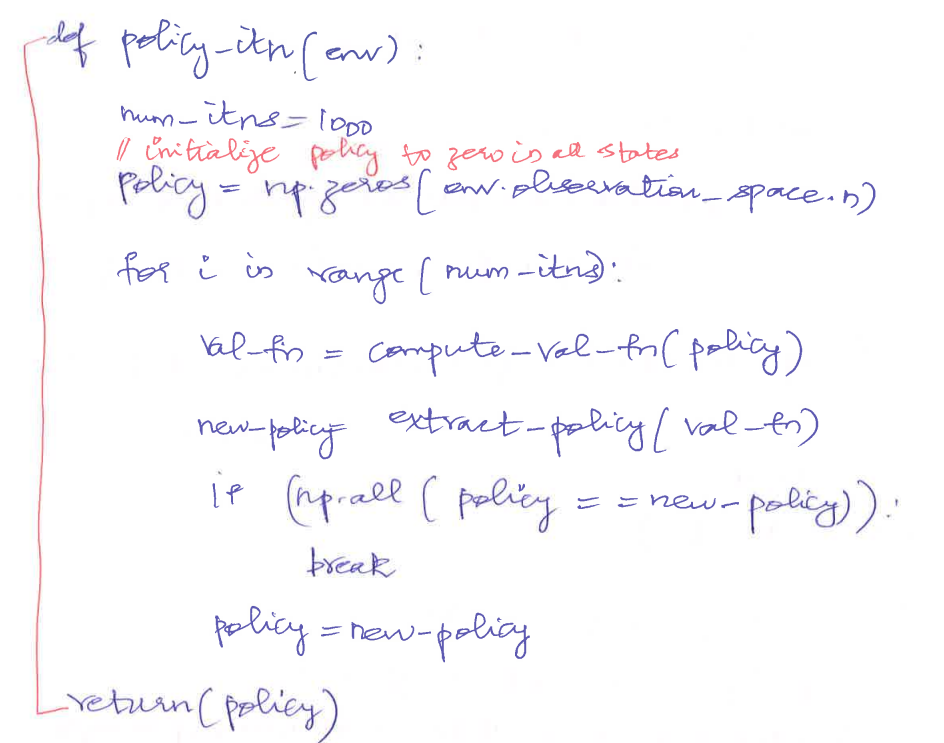 def policy-itn(env):
num-itns=1000
// initialize policy to zero in all states
policy = np.zeros(env.observation_space.n)
for i in range(num-itns):
val-fn = compute-val-fn(policy)
new-policy extract-policy(val-fn)
if (np.all(policy == new-policy)):
break
policy = new-policy
return(policy)